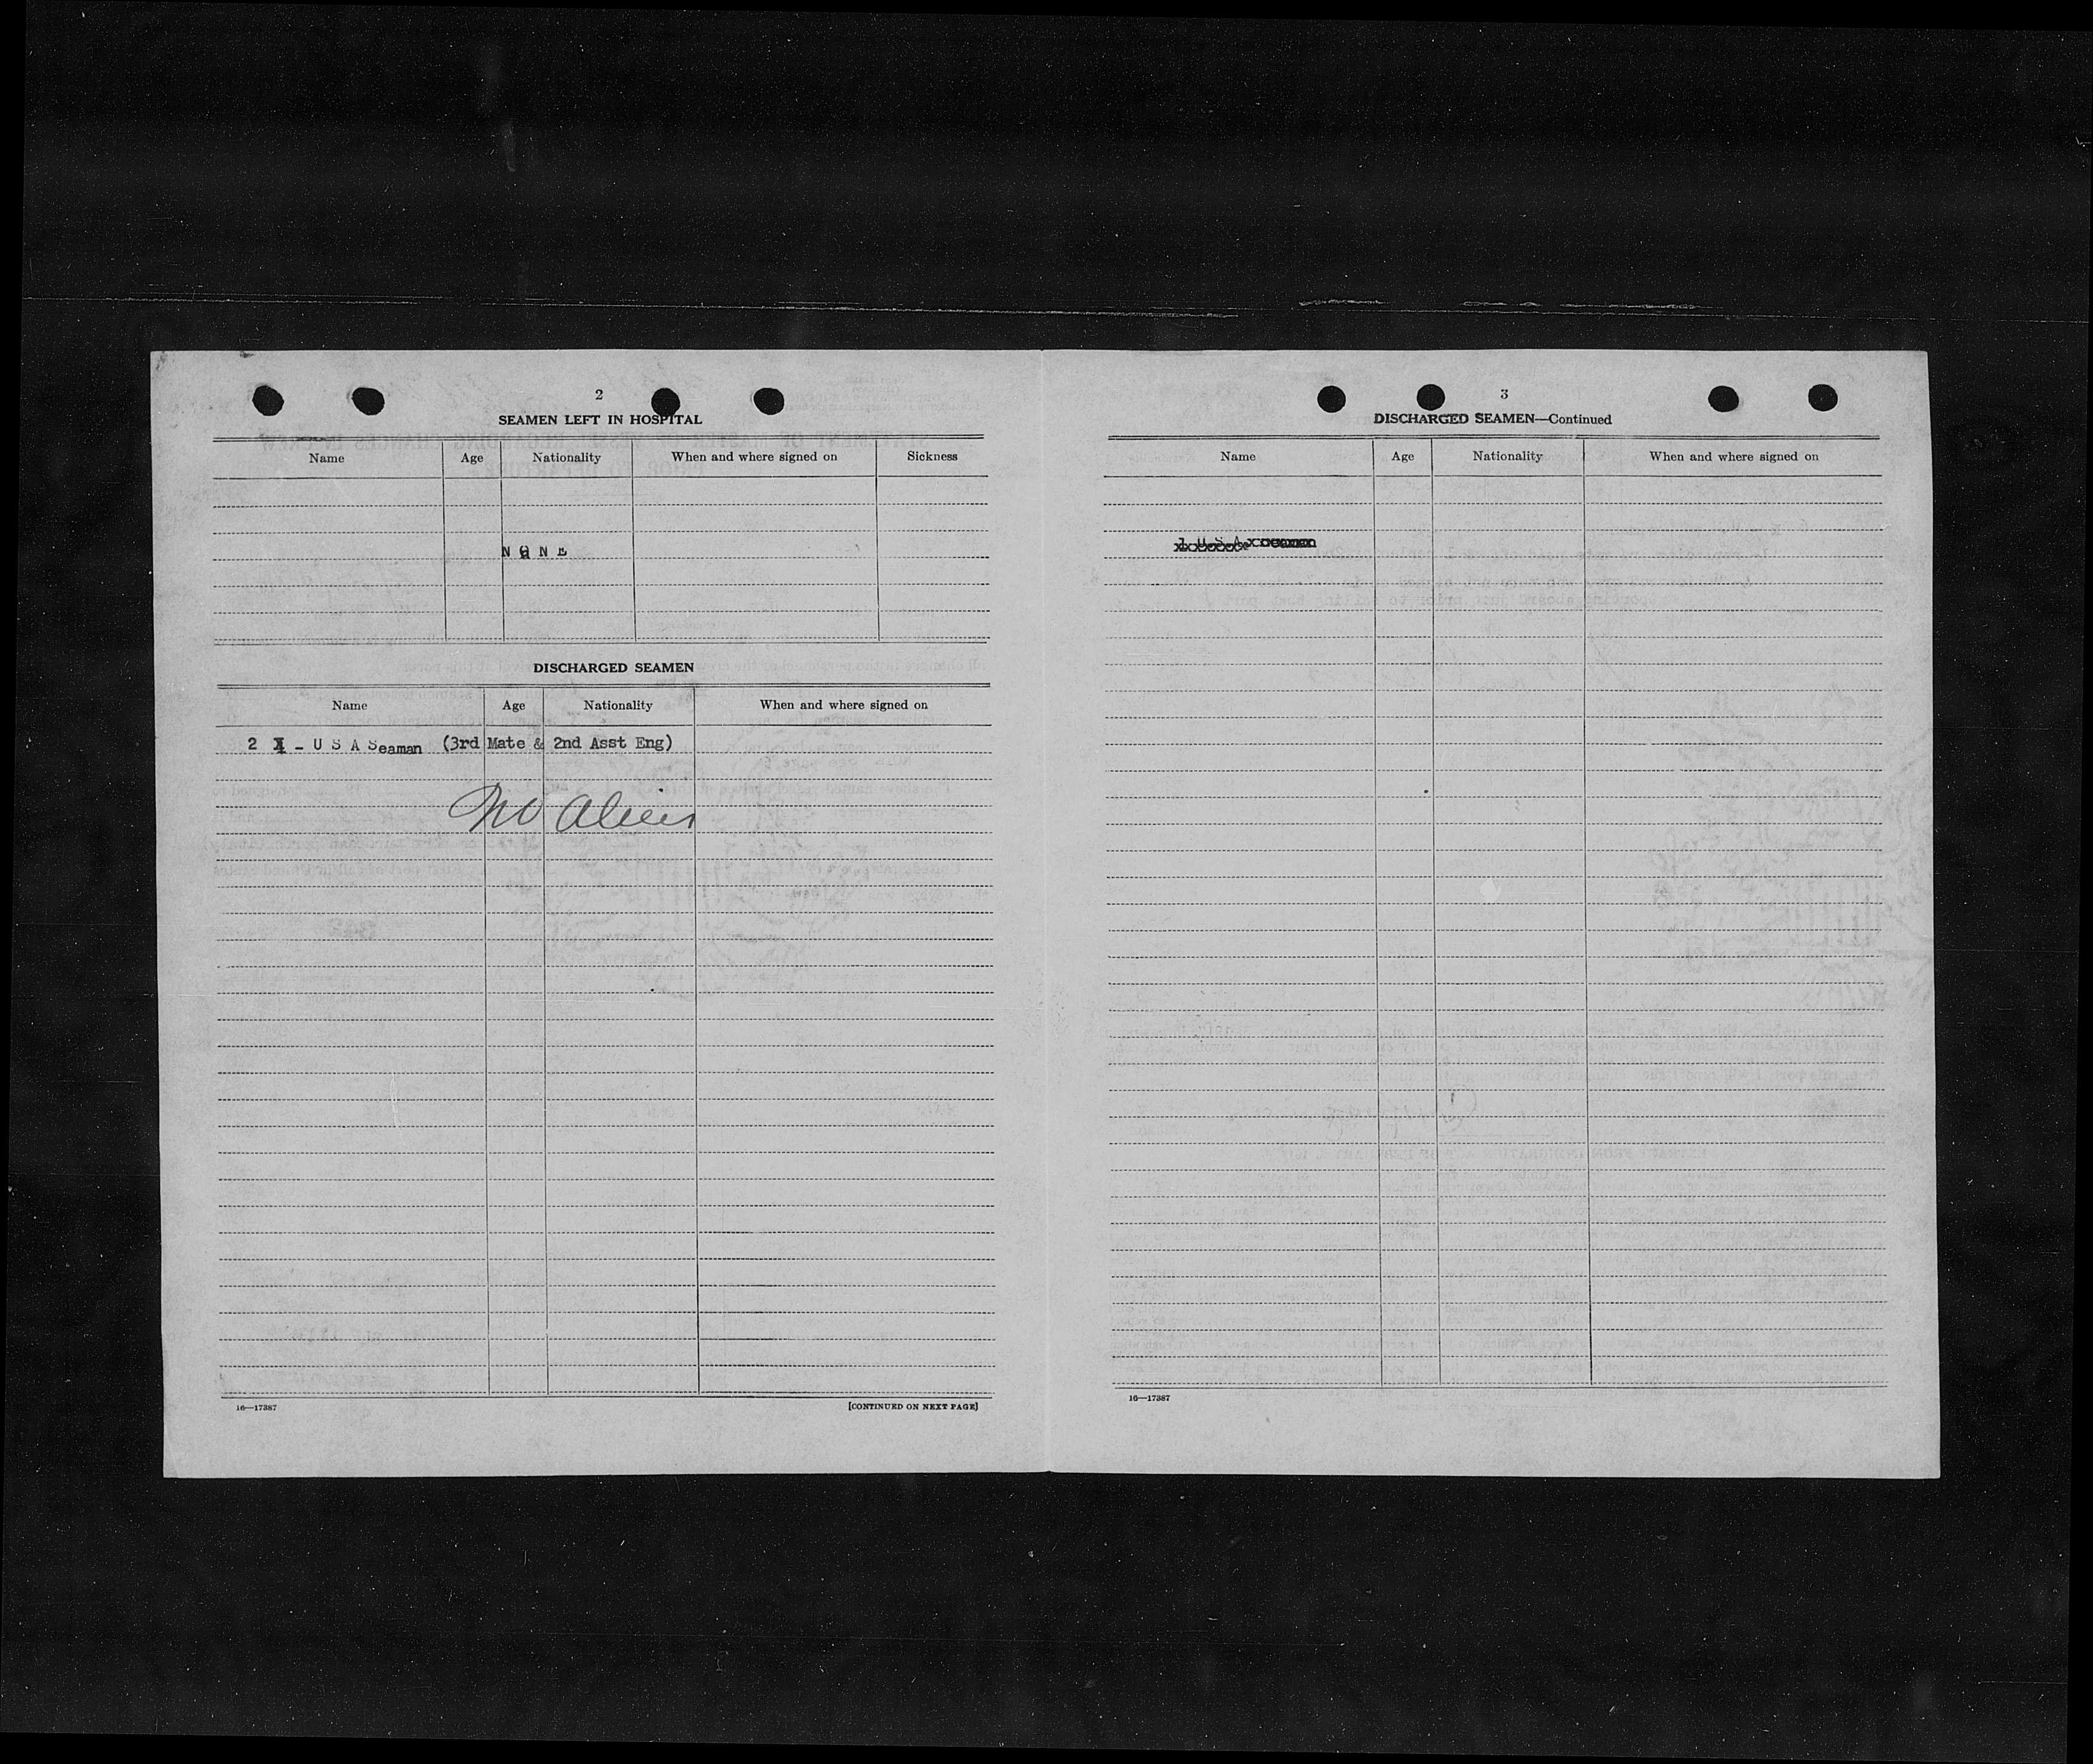 2
SEAMEN LEFT IN HOSPITAL
Name Age Nationality When and where signed on Sickness
NONE
DISCHARGED SEAMEN
Name Age Nationality When and where signed on
2 - U S A Seaman (3rd Mate & 2nd Asst Eng)
No Aliens
16—17387
[CONTINUED ON NEXT PAGE]
3
DISCHARGED SEAMEN—Continued
Name Age Nationality When and where signed on
16—17387